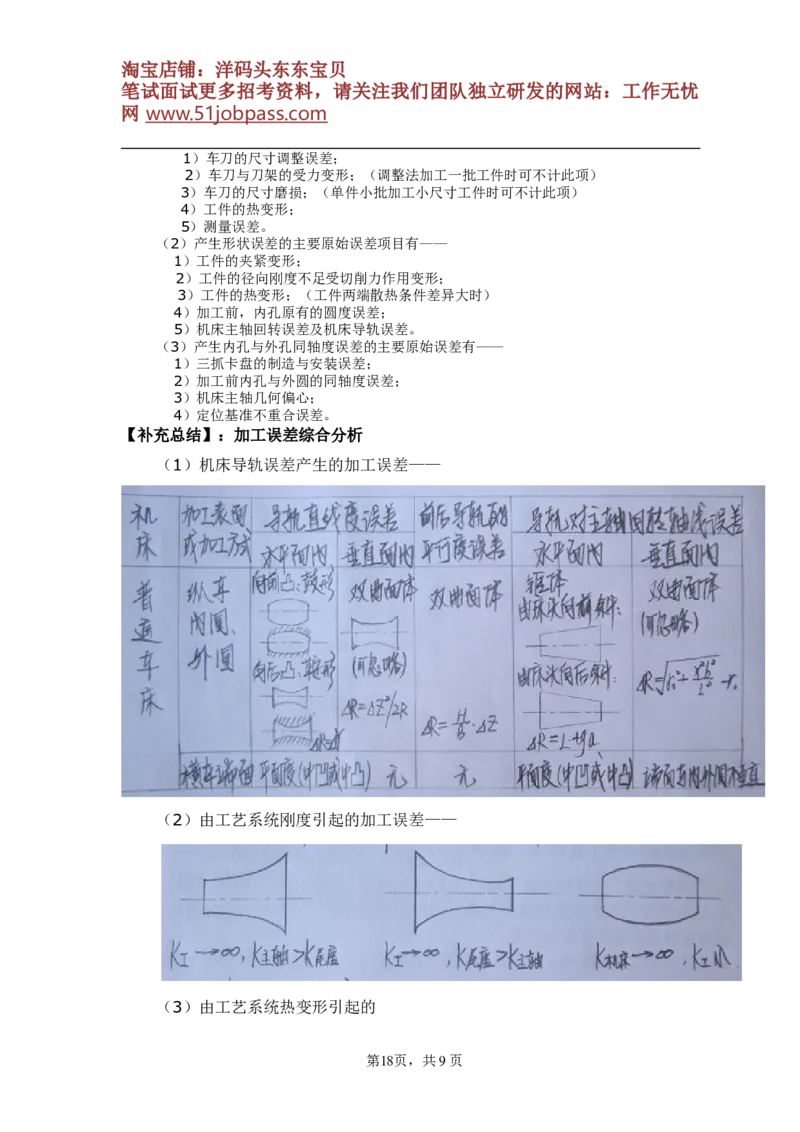 淘宝店铺：洋码头东东宝贝
笔试面试更多招考资料，请关注我们团队独立研发的网站：工作无忧
网 www.51jobpass.com
1）车刀的尺寸调整误差；
2）车刀与刀架的受力变形；（调整法加工一批工件时可不计此项）
3）车刀的尺寸磨损；（单件小批加工小尺寸工件时可不计此项）
4）工件的热变形；
5）测量误差。
（2）产生形状误差的主要原始误差项目有——
1）工件的夹紧变形；
2）工件的径向刚度不足受切削力作用变形；
3）工件的热变形；（工件两端散热条件差异大时）
4）加工前，内孔原有的圆度误差；
5）机床主轴回转误差及机床导轨误差。
（3）产生内孔与外孔同轴度误差的主要原始误差有——
1）三抓卡盘的制造与安装误差；
2）加工前内孔与外圆的同轴度误差；
3）机床主轴几何偏心；
4）定位基准不重合误差。
【补充总结】：加工误差综合分析
（1）机床导轨误差产生的加工误差——
机床 加工表面或加工方式 导轨直线度误差 前后导轨的平行度误差 导轨对主轴回转轴线误差
水平面内 垂直面内 水平面内 垂直面内
普通车床 纵车内圆、外圆
向前凸：鼓形
向后凸：鞍形
双曲面体
(可忽略)
ΔR=ΔZ²/2R
双曲面体
ΔR=H/B·ΔZ
锥体
由床头向前斜：
由床头向后斜：
ΔR=L+gα
双曲面体
(可忽略)
横车端面 平面度(中凹或中凸) 无 无 平面度(中凹或中凸) 端面与内外圆不垂直
（2）由工艺系统刚度引起的加工误差——
K工→∞，K主轴>K尾座 K工→∞，K尾座>K主轴 K机床→∞，K工小
（3）由工艺系统热变形引起的
第18页，共9页